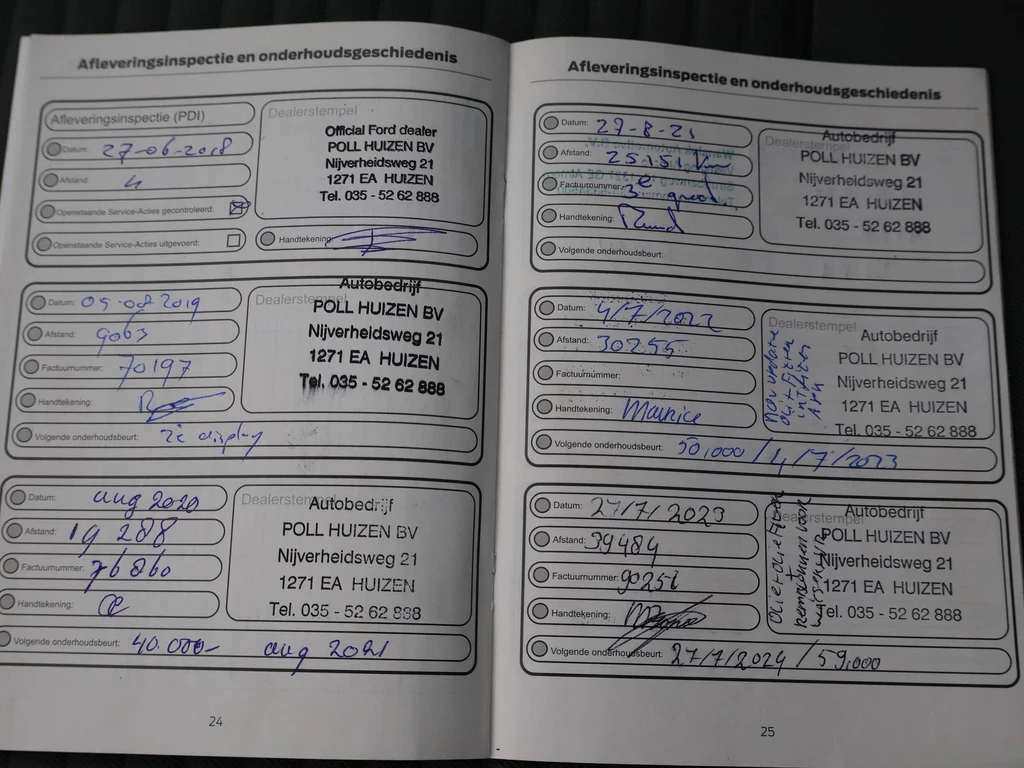 Afleveringsinspectie en onderhoudsgeschiedenis
Afleveringsinspectie (PDI)
Datum: 27-06-2018
Afstand: 4
Openstaande Service-Acties gecontroleerd:
Openstaande Service-Acties uitgevoerd:
Dealerstempel
Official Ford dealer
POLL HUIZEN BV
Nijverheidsweg 21
1271 EA HUIZEN
Tel. 035 - 52 62 888
Handtekening:
Datum: 05-08 2019
Afstand: 9063
Factuurnummer: 70197
Handtekening:
Dealerstempel
Autobedrijf
POLL HUIZEN BV
Nijverheidsweg 21
1271 EA HUIZEN
Tel. 035 - 52 62 888
Volgende onderhoudsbeurt: zie display
Datum: aug 2020
Afstand: 19 288
Factuurnummer: 76860
Handtekening:
Dealerstempel
Autobedrijf
POLL HUIZEN BV
Nijverheidsweg 21
1271 EA HUIZEN
Tel. 035 - 52 62 888
Volgende onderhoudsbeurt: 40.000- aug 2021
24
Afleveringsinspectie en onderhoudsgeschiedenis
Datum: 27-8-21
Afstand: 25151 km
Factuurnummer: 3e
Handtekening:
Dealerstempel
Autobedrijf
POLL HUIZEN BV
Nijverheidsweg 21
1271 EA HUIZEN
Tel. 035 - 52 62 888
Volgende onderhoudsbeurt:
Datum: 4/7/2022
Afstand: 30255
Factuurnummer:
Handtekening: Maurice
Dealerstempel
Autobedrijf
POLL HUIZEN BV
Nijverheidsweg 21
1271 EA HUIZEN
Tel. 035 - 52 62 888
Volgende onderhoudsbeurt: 50,000 / 4/7/2023
Datum: 27/7/2023
Afstand: 39484
Factuurnummer: 90251
Handtekening:
Dealerstempel
Autobedrijf
POLL HUIZEN BV
Nijverheidsweg 21
1271 EA HUIZEN
Tel. 035 - 52 62 888
Volgende onderhoudsbeurt: 27/7/2024 / 59,000
25